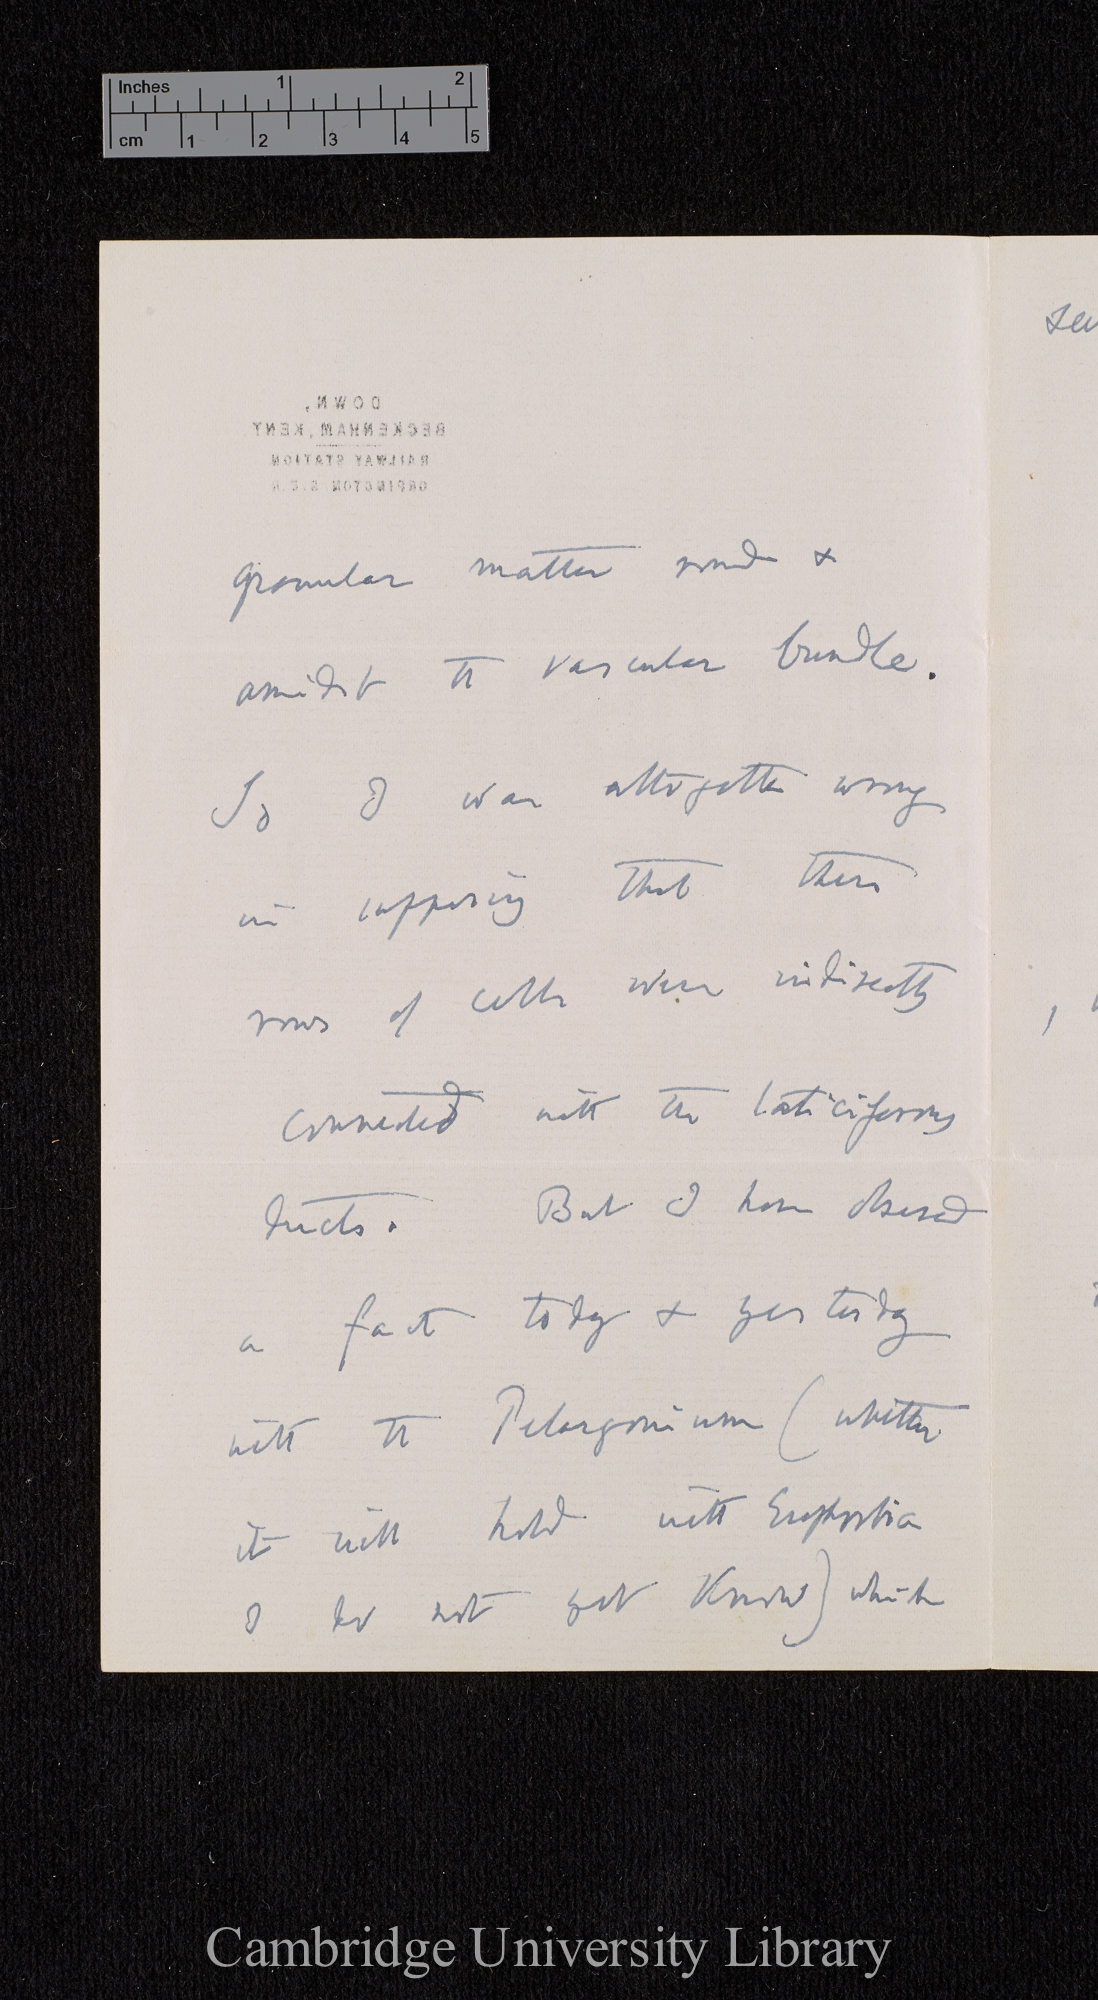 Inches 1 2
cm 1 2 3 4 5
DOWN,
BECKENHAM, KENT.
RAILWAY STATION
ORPINGTON. S.E.R.
granular matter round &
amidst the vascular bundle.
So I was altogether wrong
in supposing that these
rows of cells were indirectly
connected with the laticiferous
ducts. But I have observed
a fact today & yesterday
with the Pelargonium (whether
it will hold with Euphorbia
I do not yet know) which
Cambridge University Library